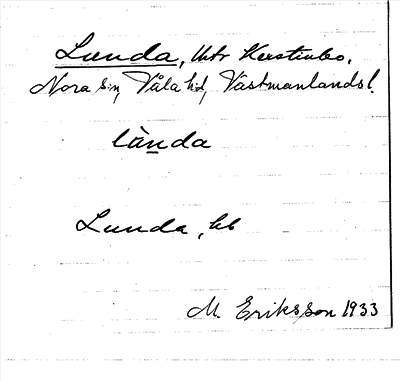 Lunda, Untr Kerstinbo,
Nora sn, Våla hd, Västmanlands l.
lànda
Lunda, hb
M. Eriksson 1933